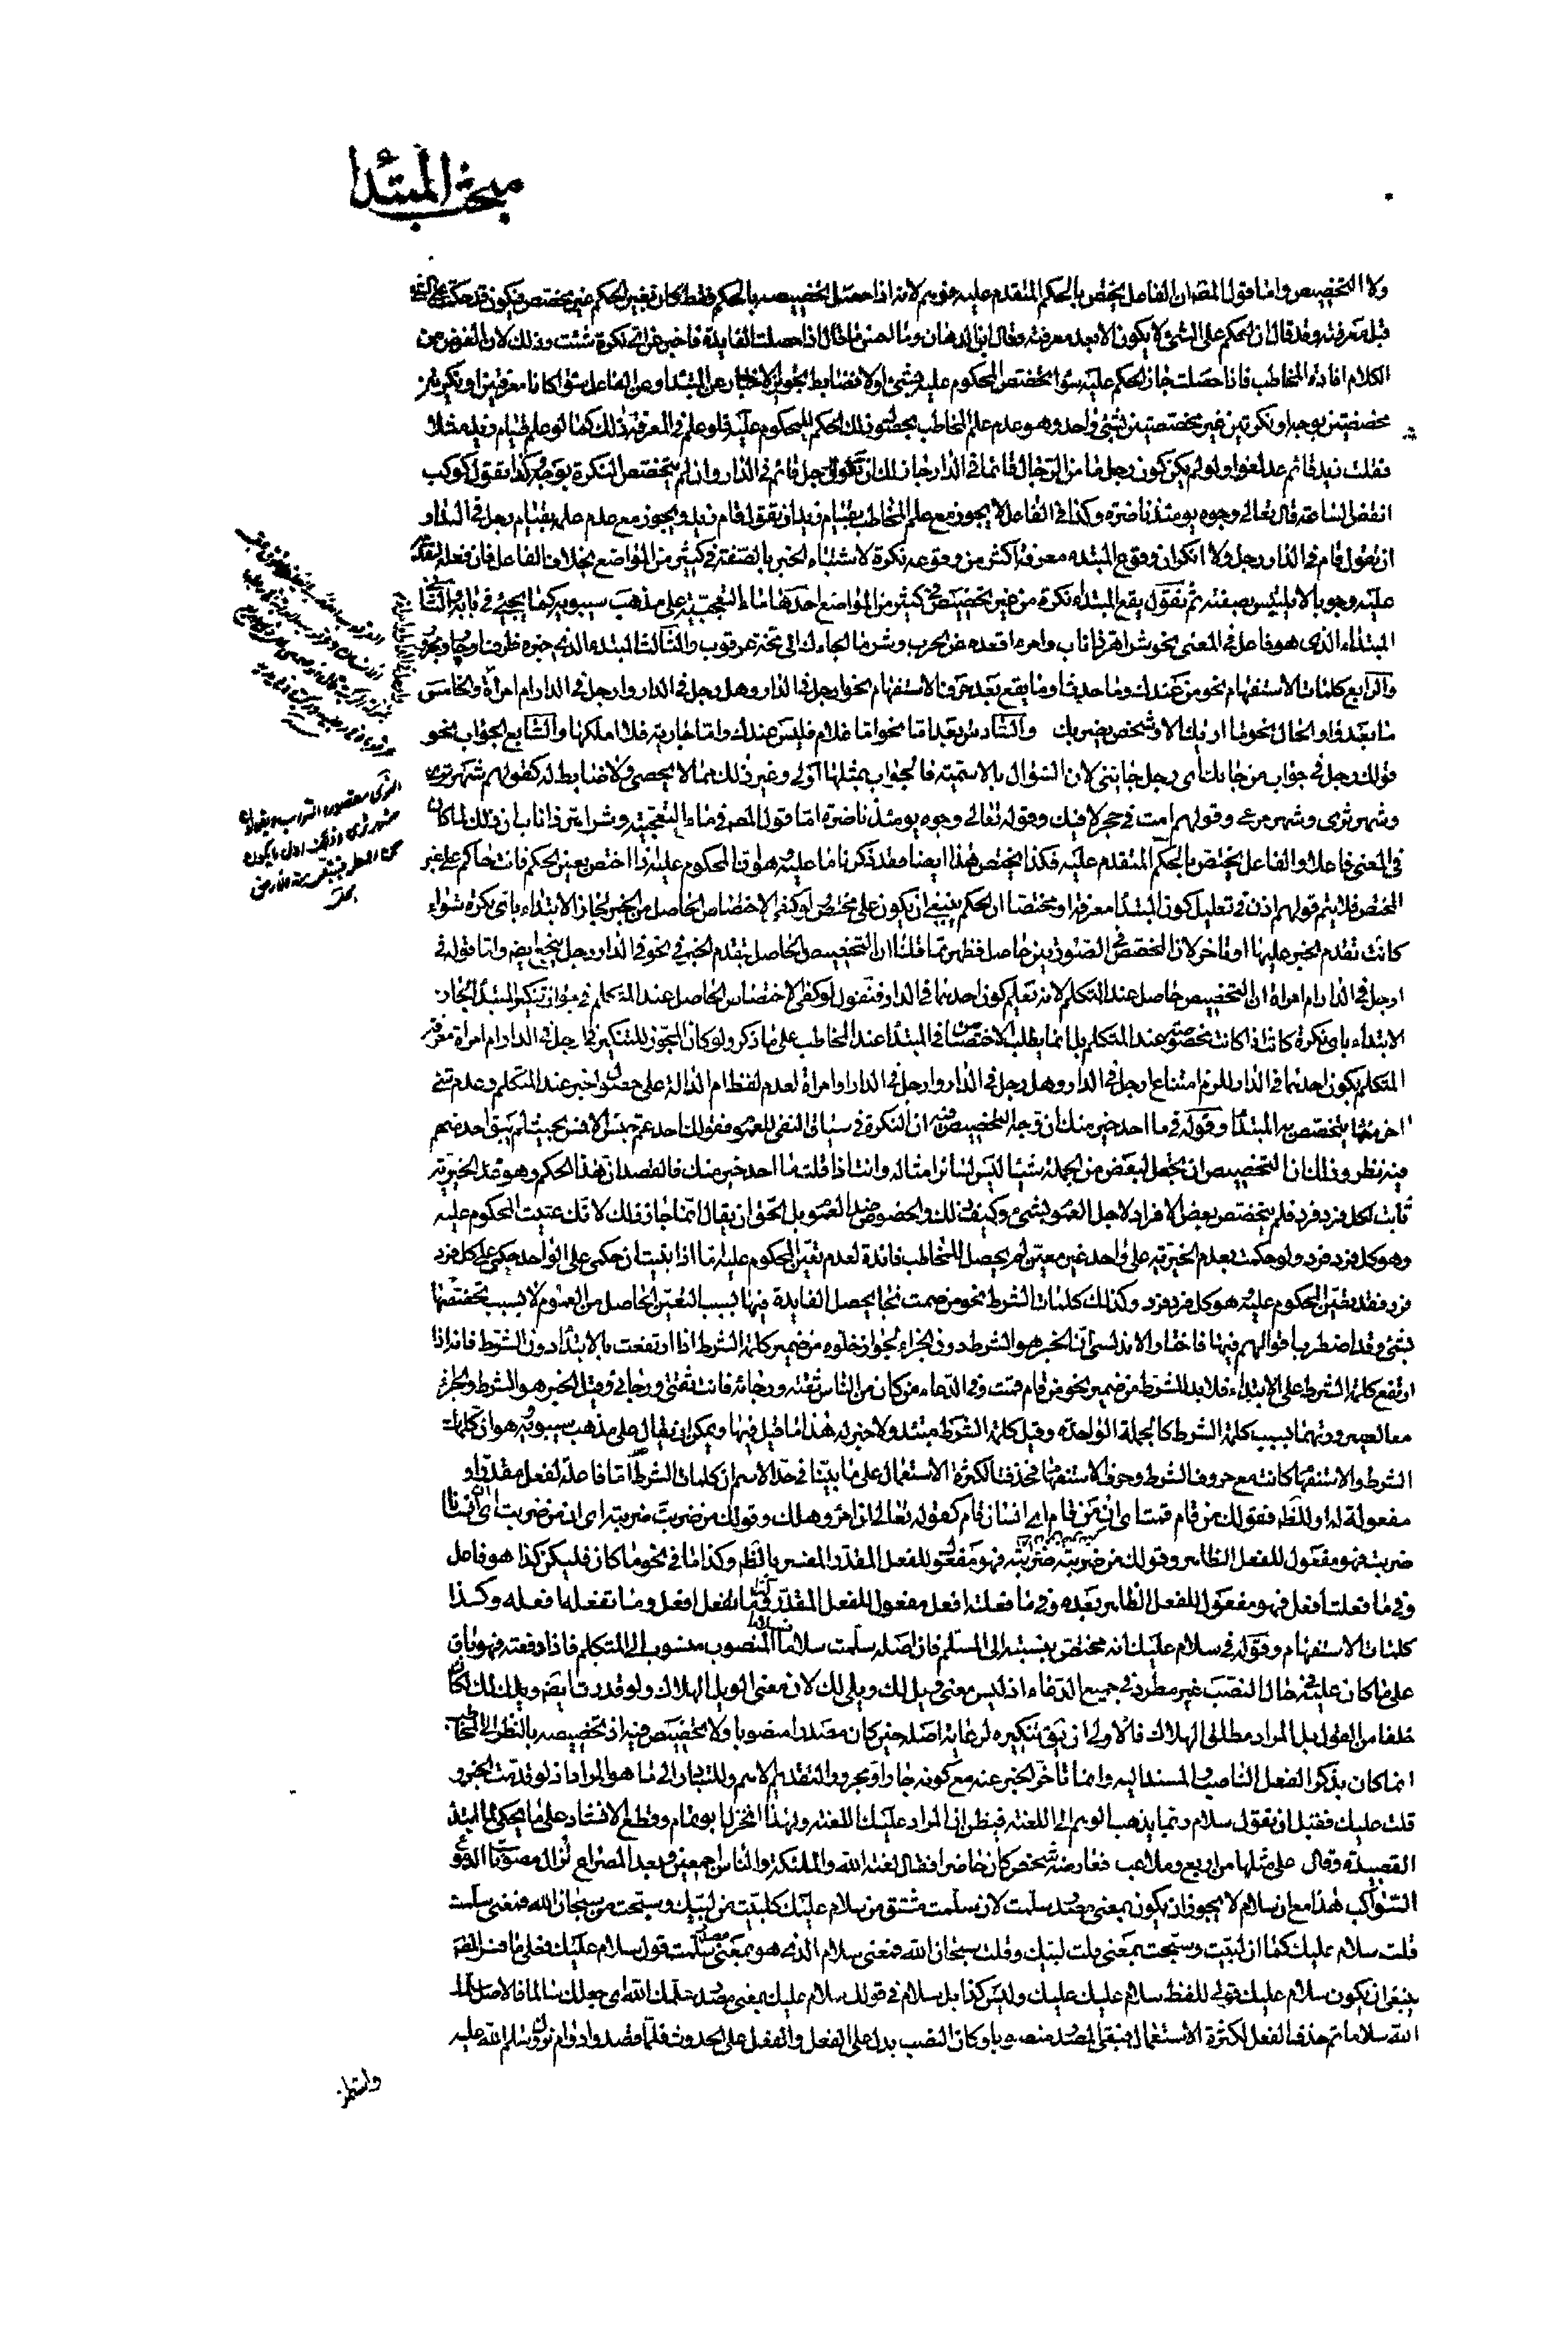 مبحث المبتدأ
ولا التخصيص واما قول المص ان الفاعل يختص بالحكم المتقدم عليه فوهم لانه اذا حصل تخصيصه بالحكم فقط كان بغير الحكم غير مختص فيكون قد حكمت على الشئ
قبل معرفته وقد قال ان الحكم على الشئ لا يكون الا بعد معرفته وقال ابن الدهان وما احسن ما قال اذا حصلت الفايدة فاخبر عن اى نكرة شئت وذلك لان الغرض من
الكلام افادة المخاطب فاذا حصلت جاز الحكم عليه سواء تخصص المحكوم عليه بشئ او لا فضابط تجويز الاخبار عن المبتدا وعن الفاعل سواء كانا معرفتين او نكرتين
مختصتين بوجه او نكرتين غير مختصتين شئ واحد وهو عدم علم المخاطب بحصول ذلك الحكم للمحكوم عليه فلو علم في المعرفة ذلك كما لو علم قيام زيد مثلا
فقلت زيد قائم عد لغوا ولو لم يكن كون رجل ما من الرجال قائما في الدار جاز لك ان تقول رجل قائم في الدار وان لم يتخصص النكرة بوجه وكذا تقول كوكب
انقض الساعة قال تعالى وجوه يومئذ ناضرة وكذا في الفاعل لا يجوز مع علم المخاطب بقيام زيد ان تقول قام زيد ويجوز مع عدم علمه بقيام رجل في الدار
ان تقول قام في الدار رجل ولا انكر ان وقوع المبتدء معرفة اكثر من وقوعه نكرة لاشتباه الخبر بالصفة في كثير من المواضع بخلاف الفاعل فان فعله لتقدمه
عليه وجوبا لا يلتبس بصفته ثم نقول يقع المبتداء نكرة من غير تخصيص في كثير من المواضع احدها ما التعجبية على مذهب سيبويه كما يجئ في بابه والثاني
المبتداء الذى هو فاعل في المعنى نحو شر اهر ذا ناب وامر اقعده عن الحرب وشر ما الجاءك الى مخة عرقوب والثالث المبتدء الذى خبره ظرف او جار ومجرور
والرابع كلمات الاستفهام نحو من عندك وما حدث وما يقع بعد حرف الاستفهام نحو ارجل في الدار وهل رجل في الدار وارجل في الدار ام امرأة والخامس
ما بعد واو الحال نحو ما اريك الا وشخص يضربك والسادس بعد اما نحو اما غلام فليس عندك واما جارية فلا املكها والسابع الجواب نحو
قولك رجل في جواب من جاءك اى رجل جاءنى لان السؤال بالاسمية فالجواب بمثلها اولى وغير ذلك مما لا يحصى ولا ضابط له كقولهم شهر ثرى
وشهر ترى وشهر مرعى وقولهم امت في حجر لا فيك وقوله تعالى وجوه يومئذ ناضرة اما قول المص في ما التعجبية وشر اهر ذا ناب ان ذلك لما كان
في المعنى فاعلا والفاعل يختص بالحكم المتقدم عليه فكذا يختص هذا ايضا فقد ذكرنا ما عليه وهو ان المحكوم عليه اذا اختص بعين الحكم فانت حاكم على غير
المختص فلا يتم قولهم اذن في تعليل كون المبتدأ معرفة او مختصا ان الحكم ينبغي ان يكون على مختص ولو كفى الاختصاص الحاصل من الخبر لجاز الابتداء باى نكرة سواء
كانت تقدم الخبر عليها او تاخر لان التخصص في الصورتين حاصل فظهر بما قلنا ان التخصيص الحاصل بتقدم الخبر في نحو في الدار رجل ايضا واما قوله في
ارجل في الدار ام امراة ان التخصيص حاصل عند المتكلم لانه يعلم كون احدهما في الدار فنقول لو كفى الاختصاص الحاصل عند المتكلم في جواز تنكير المبتدأ لجاز
الابتداء باى نكرة كانت اذا كانت مخصصة عند المتكلم بل انما يطلب الاختصاص في المبتدأ عند المخاطب على ما ذكر ولو كان المجوز للتنكير في ارجل في الدار ام امراة معرفة
المتكلم بكون احدهما في الدار للزم امتناع ارجل في الدار وهل رجل في الدار وارجل في الدار او امراة لعدم لفظ ام الدالة على حصول الخبر عند المتكلم وعدم شئ
اخر منها يتخصص به المبتدأ وقوله في ما احد خير منك ان وجه التخصيص فيه ان النكرة في سياق النفي للعموم فقولك احد عم جنس الانس بحيث لم يبق احد منهم
فيه نظر وذلك ان التخصيص ان يجعل لبعض من الجملة شيئا ليس لسائر امثاله وانت اذا قلت ما احد خير منك فالقصد ان هذا الحكم وهو عدم الخيرية
ثابت لكل فرد فرد فلم يتخصص بعض الافراد لاجل العموم بشئ وكيف ذلك والخصوص ضد العموم بل الحق ان يقال انما جاز ذلك لانك عنيت المحكوم عليه
وهو كل فرد فرد ولو حكمت بعدم الخيرية على واحد غير معين لم يحصل للمخاطب فائدة لعدم تعين المحكوم عليه اما اذا بنيت ان حكمى على الواحد حكمى على كل فرد
فرد فقد تعين المحكوم عليه هو كل فرد فرد وكذلك كلمات الشرط نحو من صمت نجا يحصل الفايدة فيها بسبب التعين الحاصل من العموم لا بسبب تخصيصها
بشئ وقد اضطربا اقوالهم فيها فاختار الاندلسى ان الخبر هو الشرط دون الجزاء لجواز خلوه من ضمير كلمة الشرط اذا ارتفعت بالابتداء دون الشرط فانه اذا
ارتفع كلمة الشرط على الابتداء فلا بد للشرط من ضمير نحو من قام قمت وفي الدعاء من كان من الناس ثقته ورجائه فانت ثقتى ورجائى وقيل الخبر هو الشرط والجزاء
معا لصيرورتهما بسبب كلمة الشرط كالجملة الواحدة وقيل كلمة الشرط مبتدء ولا خبر له هذا ما قيل فيها ويمكن ان يقال على مذهب سيبويه هو ان كلمات
الشرط والاستفهام كانت مع حروف الشرط وحرف الاستفهام فحذفتا لكثرة الاستعمال على ما بينا في حد الاسم ان كلمات الشرط اما فاعلة لفعل مقدر او
مفعولة له او للظ فقولك من قام قمت اى ان من قام اى انسان قام كقوله تعالى ان امرؤ هلك وقولك من ضربت ضربته اى ان من ضربت اى انسانا
ضربت فهو مفعول للفعل الظاهر وقولك من ضربته ضربته فهو مفعول للفعل المقدر المفسر بالظ وكذا ما في نحو ما كان فليكن كذا هو فاعل
وفي ما فعلت افعل فهو مفعول للفعل الظاهر بعده وفي ما فعلته افعل مفعول للفعل المقدر وما تفعل افعل وما تفعله افعله وكذا
كلمات الاستفهام وقوله في سلام عليك انه مختص بنسبته الى المسلم فان اصله سلمت سلاما المنصوب منسوب الى المتكلم فاذا رفعته فهو باق
على ما كان عليه في حال النصب غير مطرد في جميع الدعاء اذ ليس معنى ويل لك ويلى لك لان معنى الويل الهلاك ولو قدرت ايضا ويلك لك لكان
خلفا من القول بل المراد مطلق الهلاك فالاولى ان يبق تنكيره لرعاية اصله حين كان مصدرا منصوبا ولا تخصيص فيه اذ تخصيصه بالنظر الى المخاطب
انما كان بذكر الفعل الناصب والمسند اليه وانما تاخر الخبر عنه مع كونه جارا ومجرورا لتقديم الاسم وللتبادر الى ما هو المراد اذ لو قدمت الخبر و
قلت عليك فقبل ان تقول سلام ربما يذهب الوهم الى اللعنة فيظن ان المراد عليك اللعنة ولهذا انخزل ابو تمام وقطع الانشاد على ما يحكى لما ابتدأ
القصيدة وقال على مثلها من اربع وملاعب فعارضه شخص كان حاضرا فقال لعنة الله والملئكة والناس اجمعين وبعد المصراع تذال مصونات الدموع
السواكب هذا مع ان سلام لا يجوز ان يكون بمعنى مصدر سلمت لان سلمت مشتق من سلام عليك كلبيت من لبيك وسبحت من سبحان الله فمعنى سلمت
قلت سلام عليك كما ان لبيت وسبحت بمعنى قلت لبيك وقلت سبحان الله فمعنى سلام الذى هو بمعنى مصدر سلمت قول سلام عليك فعلى ما فسر المص
ينبغى ان يكون سلام عليك قولى للفظ سلام عليك عليك وليس كذا بل سلام في قولك سلام عليك بمعنى مصدر سلمك الله اى جعلك سالما فالاصل سلمك
الله سلاما ثم حذف الفعل لكثرة الاستعمال فبقى المصدر منصوبا وكان النصب يدل على الفعل والفعل على الحدوث فلما قصدوا دوام نزول سلام الله عليه
واستمراره